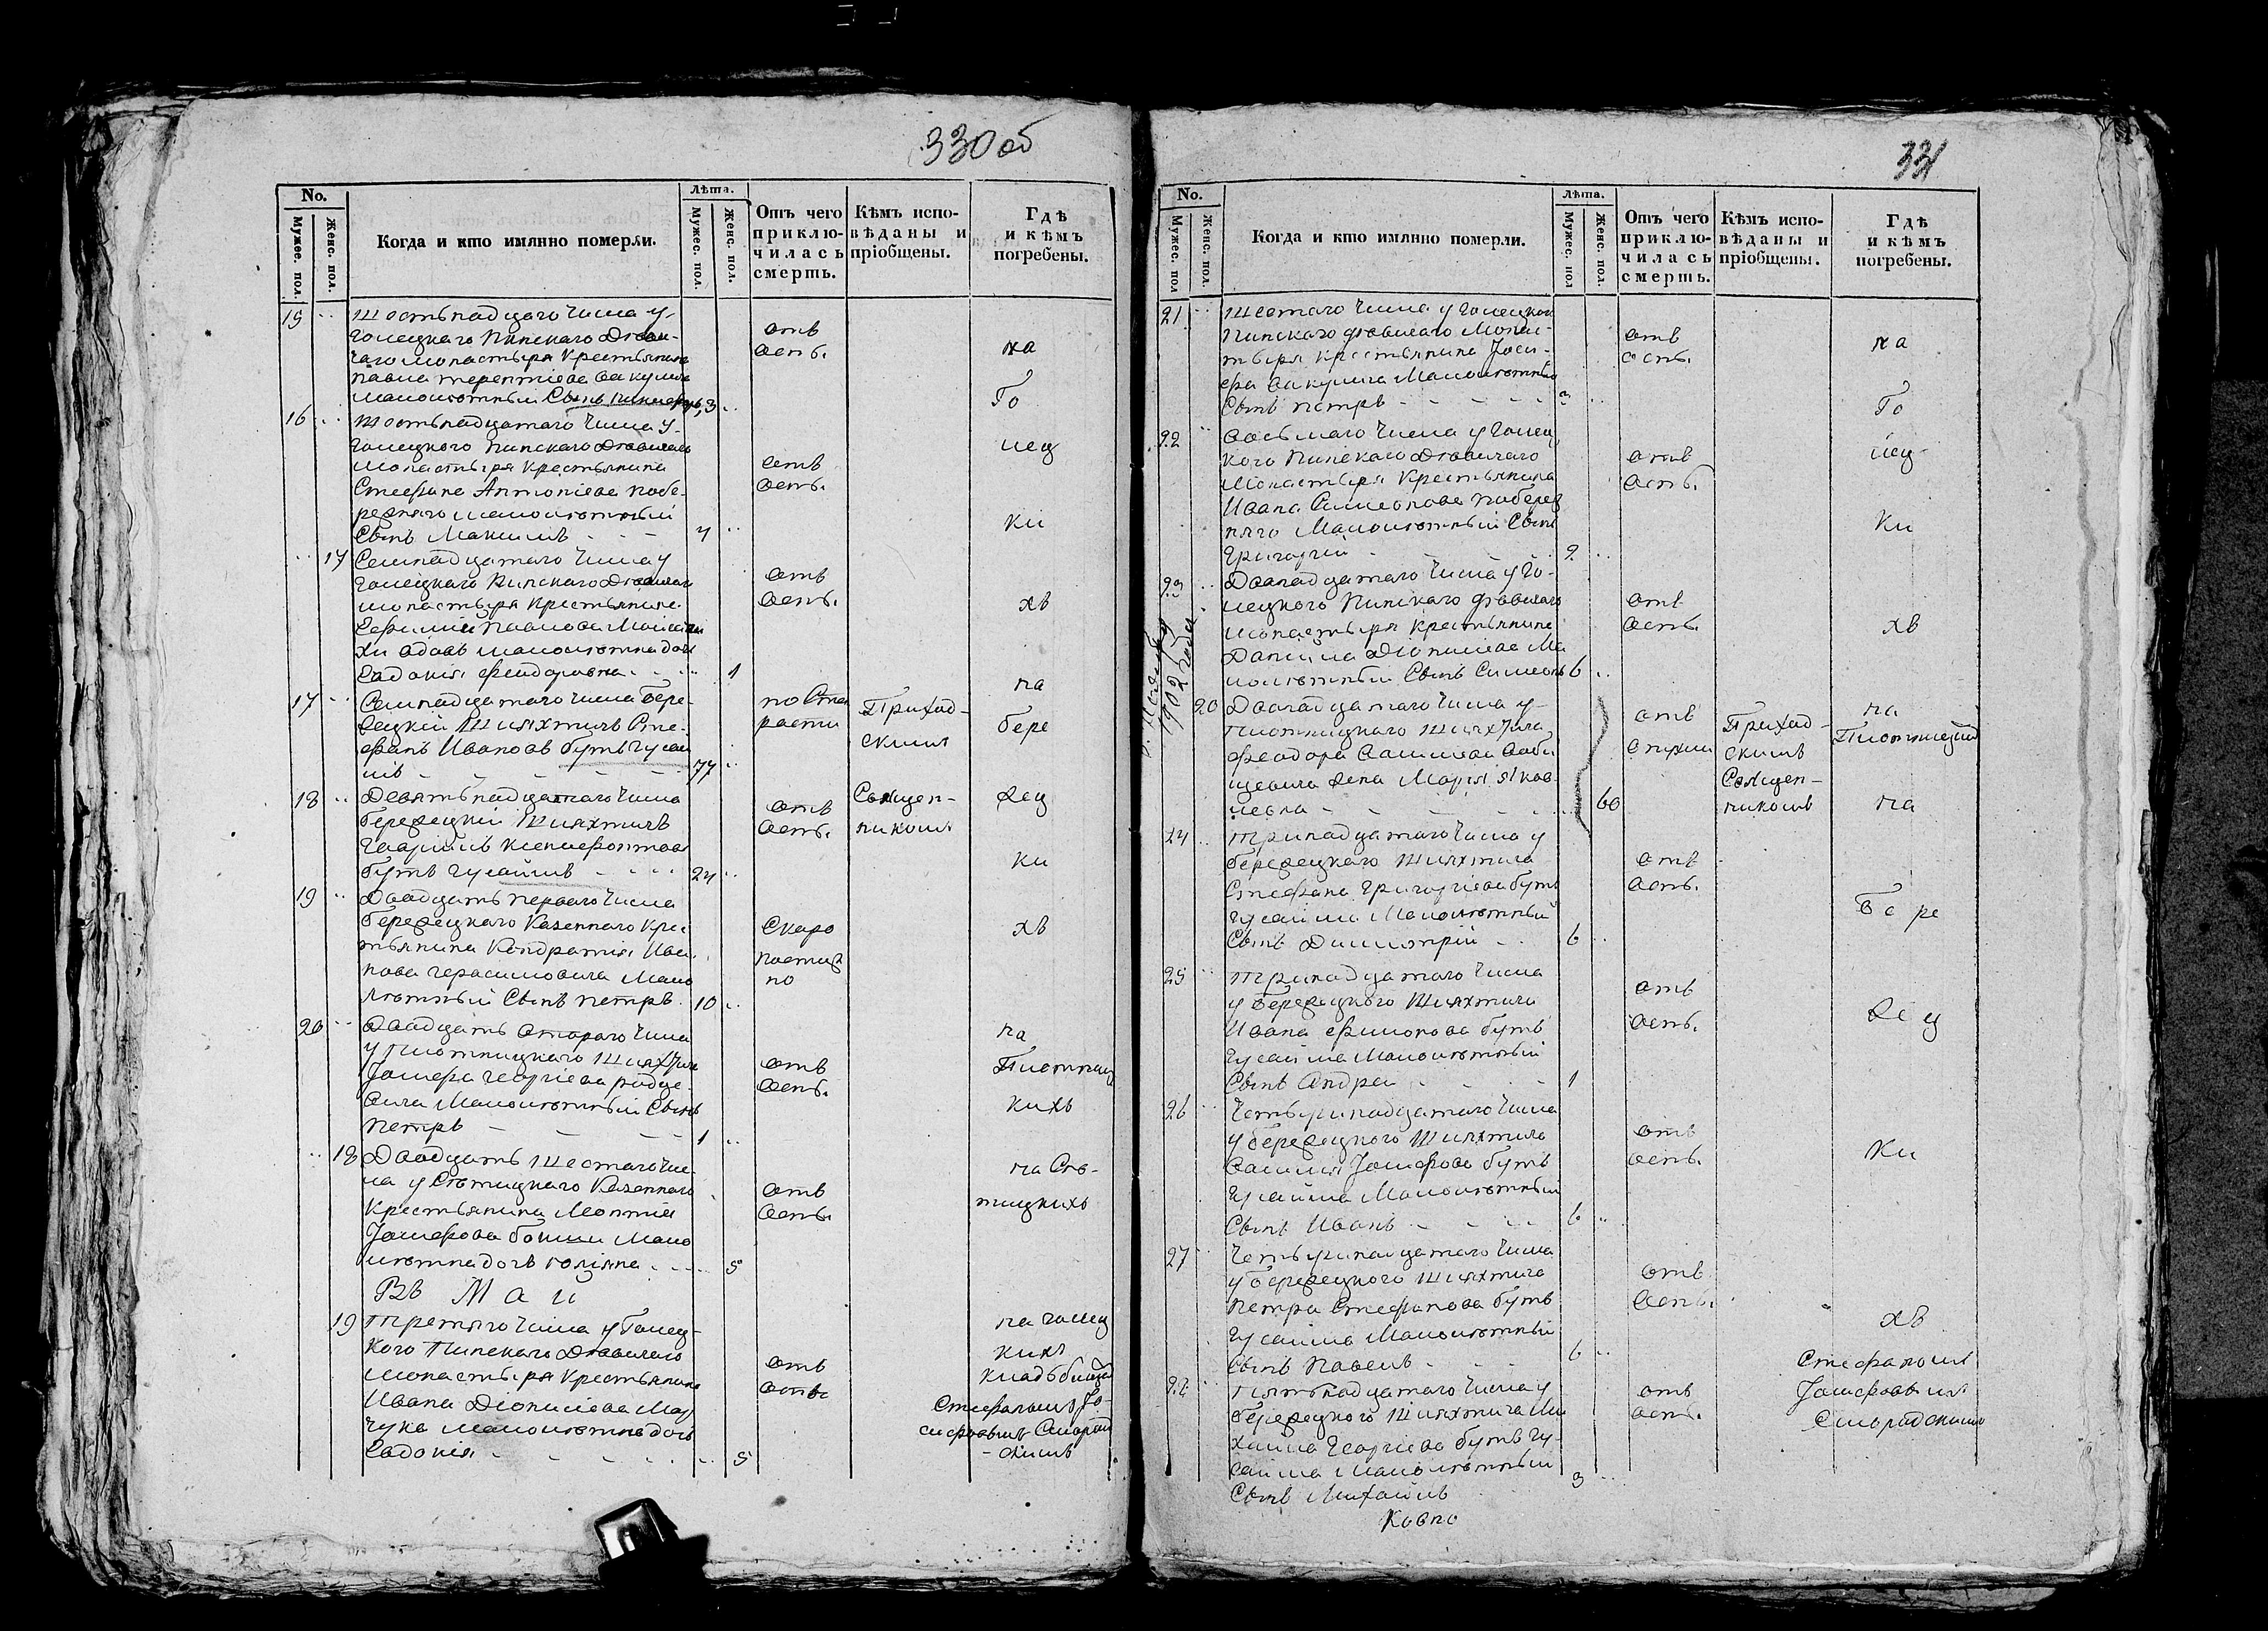 330 об
No.
Мужес. пол.
Женс. пол.
Когда и кто имянно померли.
Лѣта.
Мужес. пол.
Женс. пол.
Отъ чего приклю-чилась смерть.
Кѣмъ испо-вѣданы и пріобщены.
Гдѣ и кѣмъ погребены.
15 Шостьнадцаго числа у
Голецкаго Пинского Дѣвич-
чаго монастыря крестьянина
Павла Терентіева Вакулича
малолѣтный Сынъ 3
отъ
оспы.
на
Го
16 Шостьнадцатаго числа у
Голецкого Пинского Дѣвичаго
монастыря крестьянина
Стефана Антоніева Побе-
режнаго малолѣтный
Сынъ Максимъ 4
отъ
оспы.
лец
ки
17 Семнадцатаго числа у
Голецкаго Пинского Дѣвичаго
монастыря крестьянина
малолѣтна дочь
Евдокія Феодоровна 1
отъ
оспы.
хъ
17 Семнадцатаго числа Бере-
жецкій Шляхтичъ Сте-
фанъ Ивановъ Бутъ Гусаи
мъ 77
по Ста
рости
Приход-
скимъ
на
бере
18 Девятьнадцатаго числа
бережецкій Шляхтичъ
Гаврі­илъ Ксенофонтовъ
бутъ Гусаимъ 24
отъ
оспы.
Священ-
никомъ
жец
ки
19 Двадцать перваго числа
бережецкого Казенного Крес
тьянина Кондратія Ива
нова Герасимовича Мало
лѣтный Сынъ Петръ 10
Скоро
постиж
но
хъ
20 Двадцать втораго числа
у Плотницкого Шляхтича
Іосифа Георгіева
малолѣтный Сынъ
Петръ 1
отъ
оспы.
на
Плотниц
кихъ
18 Двадцать шестаго чис-
ла у Стѣтицкого Казенного
Крестьянина Леонтія
Іосифова малo
лѣтна дочь Голіяна 5
отъ
оспы.
на Стѣ-
тицкихъ
Въ Маи
19 Третяго числа у Голец-
кого Пинского Дѣвичаго
монастыря крестьянина
Ивана Діонисіева Мац
чука малолѣтна дочь
Евдокія 5
отъ
оспы
на Голец
кихъ
кладьбищах
Стефаномъ Іо-
сифовымъ Смород
-скимъ
331
No.
Мужес. пол
Женс. пол.
Когда и кто имянно померли.
Лѣта.
Мужес. пол
Женс. пол.
Отъ чего приклю-чилась смерть.
Кѣмъ испо-вѣданы и пріобщены.
Гдѣ и кѣмъ погребены.
21 Шестаго числа у Голецкого
Пинскаго Дѣвичаго Монас-
тыря крестьянина Іоси-
фа Вакулича Малолѣтный
Сынъ Петръ 3
отъ
оспы.
на
Го
22 Восьмаго числа у Голец
кого Пинскаго Дѣвичаго
Монастыря Крестьянина
Ивана Симеонова Побереж
няго Малолѣтный Сынъ
Григорій 2
отъ
оспы.
лец-
ки
23 Дванадцатаго числа у Го-
лецкого Пинскаго Дѣвичаго
монастыря крестьянина
Даніила Діонисіева Ма
лолѣтный Сынъ Симеонъ 6
отъ
оспы.
хъ
1902 года
20 Дванадцатаго числа у
Плотницкаго Шляхтича
Феодора Василіева Баби
щевича жена Марія Яков
левна 60
отъ
Приход-
скимъ
Священ-
никомъ
на
Плотницкий
на
24 Тринадцатаго числа у
бережецкаго Шляхтича
Стефана Григоріева бутъ
Гусаима Малолѣтный
Сынъ Димитрій 6
отъ
оспы.
Бере
25 Тринадцатаго числа
у Бережецкого Шляхтича
Ивана Филипова бутъ
Гусаима Малолѣтный
Сынъ Андрей 1
отъ
оспы.
жец
26 Четырнадцатаго числа
у бережецкого Шляхтича
Василія Іосифова бутъ
Гусаима Малолѣтный
Сынъ Иванъ 6
отъ
оспы.
ки
27 Четырнадцатаго числа
у бережецкого Шляхтича
Петра Стефанова бутъ
Гусаима Малолѣтный
Сынъ Павелъ 6
отъ
оспы.
хъ
28 Пятьнадцатаго числа у
бережецкого Шляхтича Ми
хаила Георгіева бутъ Гу-
саима малолѣтный
Сынъ Михаилъ 3
отъ
оспы.
Стефаномъ
Іосифовымъ
Смородскимъ